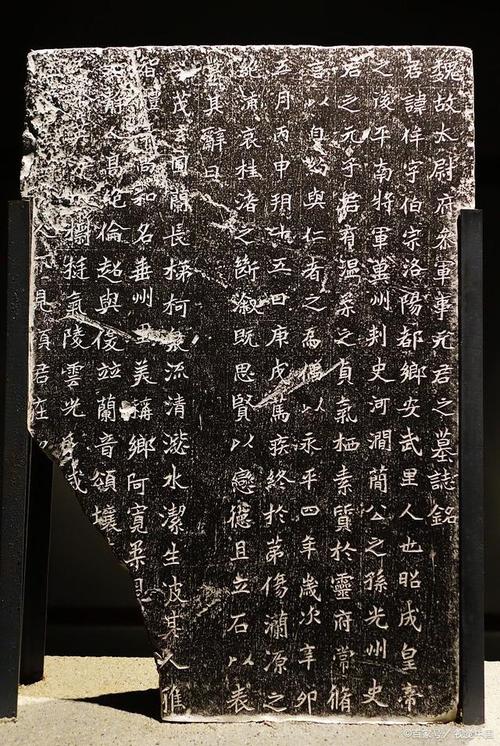 魏故太尉府參軍事元君之墓誌銘
君諱侔字伯宗洛陽都鄉安武里人也昭成皇帝
之後平南將軍冀州刺史河澗簡公之孫光州史
君之元子君有溫柔之貞氣栖素質於靈府常脩
言以自 與仁者之為儒以永平四年歲次辛卯
五月丙申朔 五日庚戌篤疾終於第傷瀾源之
絶浦哀桂渚之斷漵既思賢以戀德且立石以表
其辭曰
茂 回蘭長梯柯 流清 水潔生波其人隹
和名垂州 美稱鄉阿寬柔
靜人高絶倫超與俊並蘭音頌壤
氣陵雲光
見 君在
©百家号/视觉中国